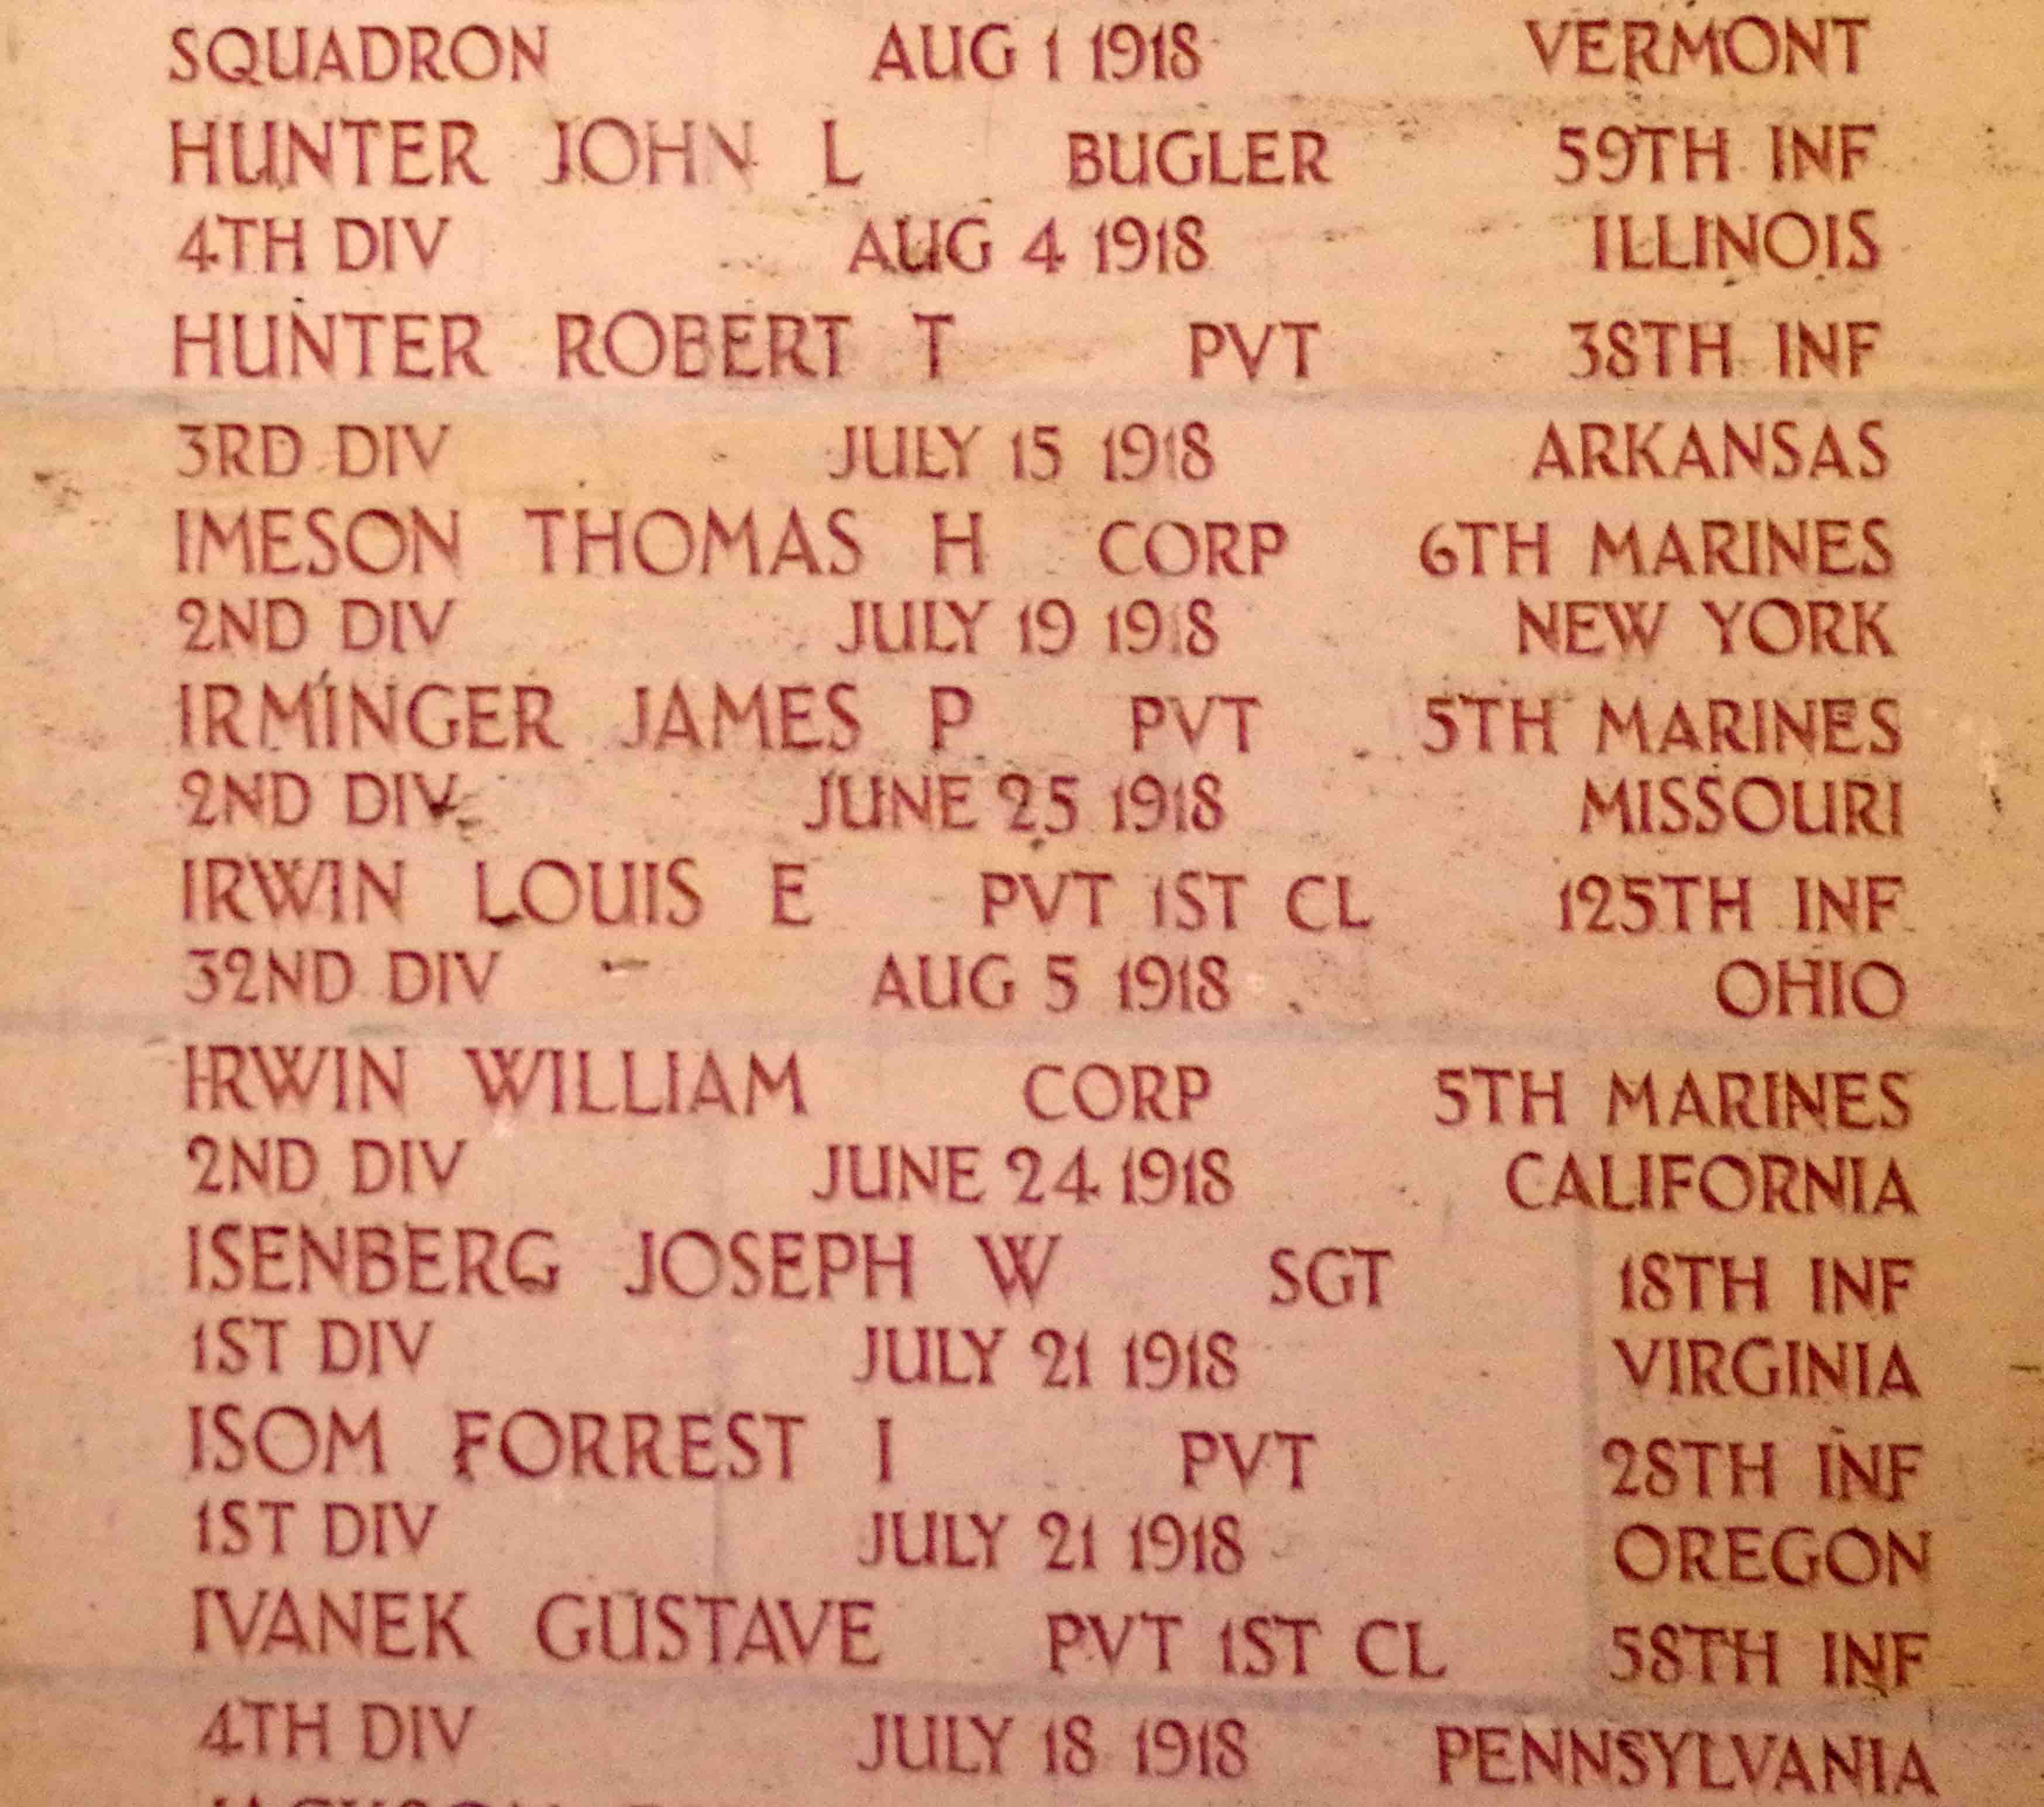 SQUADRON AUG 1 1918 VERMONT
HUNTER JOHN L BUGLER 59TH INF
4TH DIV AUG 4 1918 ILLINOIS
HUNTER ROBERT T PVT 38TH INF
3RD DIV JULY 15 1918 ARKANSAS
IMESON THOMAS H CORP 6TH MARINES
2ND DIV JULY 19 1918 NEW YORK
IRMINGER JAMES P PVT 5TH MARINES
2ND DIV JUNE 25 1918 MISSOURI
IRWIN LOUIS E PVT 1ST CL 125TH INF
32ND DIV AUG 5 1918 OHIO
IRWIN WILLIAM CORP 5TH MARINES
2ND DIV JUNE 24 1918 CALIFORNIA
ISENBERG JOSEPH W SGT 18TH INF
1ST DIV JULY 21 1918 VIRGINIA
ISOM FORREST I PVT 28TH INF
1ST DIV JULY 21 1918 OREGON
IVANEK GUSTAVE PVT 1ST CL 58TH INF
4TH DIV JULY 18 1918 PENNSYLVANIA